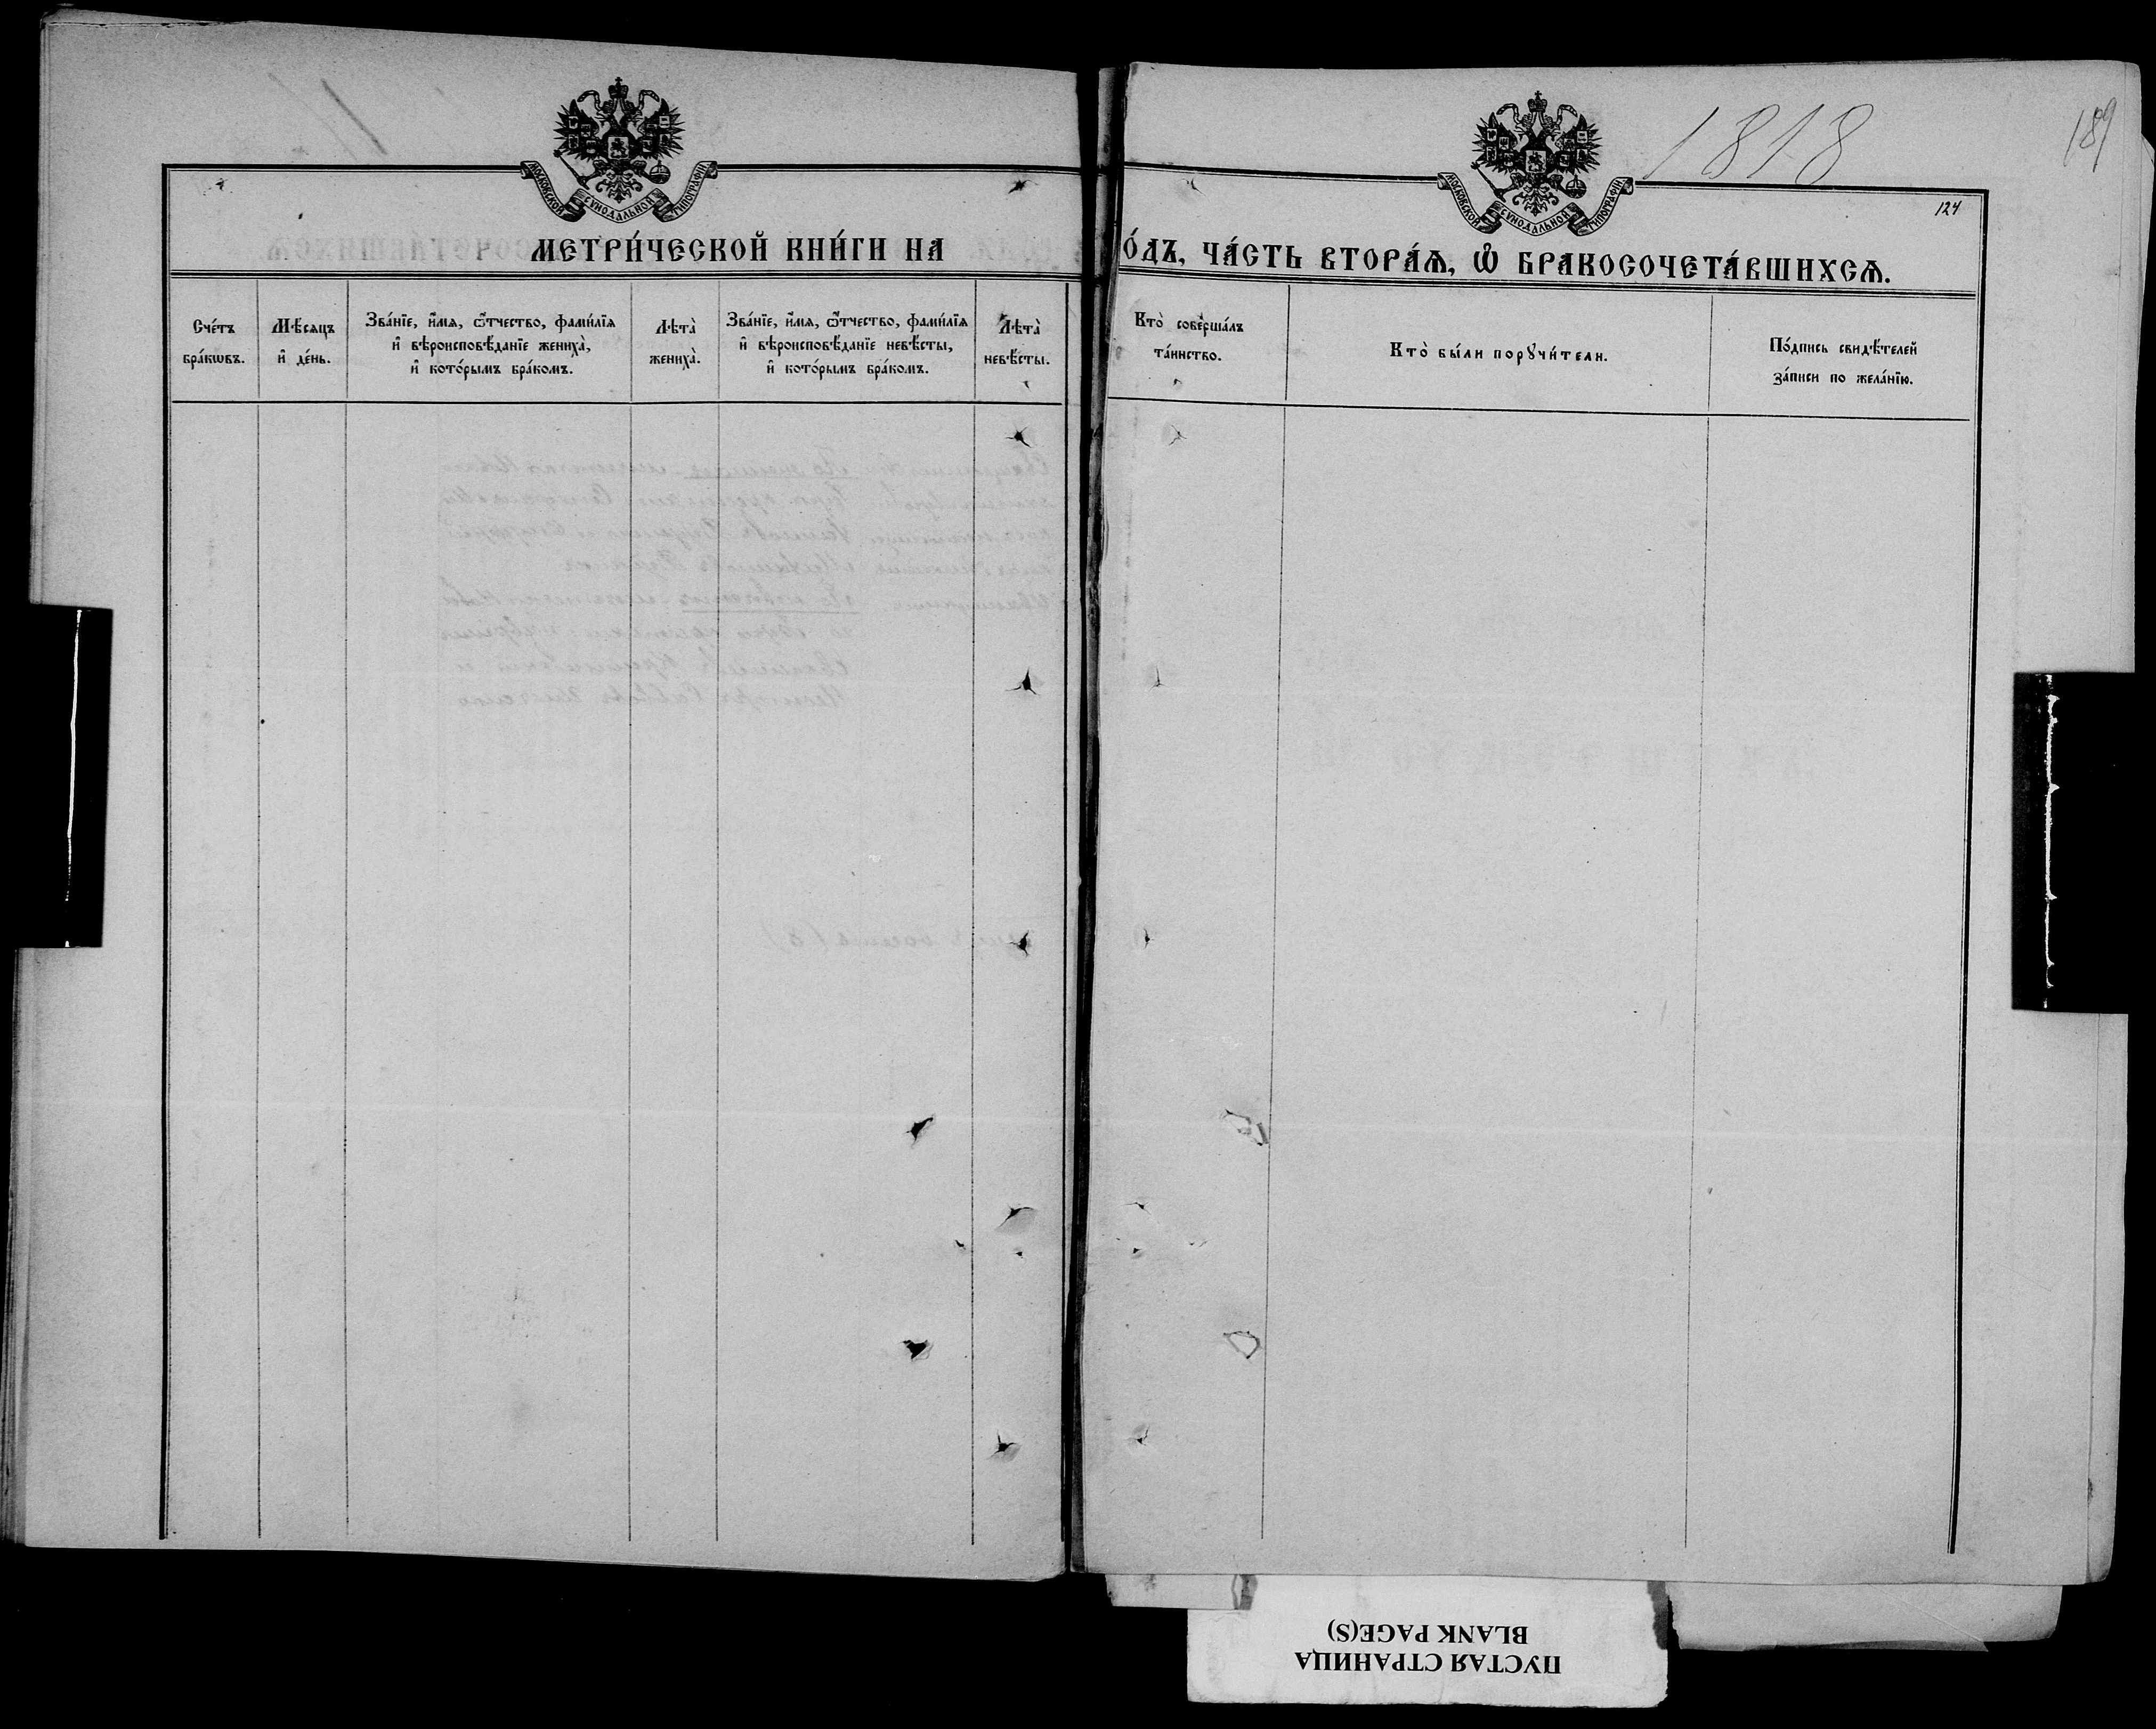 МОСКОВСКОЙ СѴНОДАЛЬНОЙ ТИПОГРАФІИ.
МЕТРИ́ЧЕСКОЙ КНИ́ГИ НА
Сче́тъ бра́кѡвъ.
Мѣ́сяцъ и҆ де́нь.
Зва́нїе, и҆́мѧ, ѻ҆́тчество, фами́лїѧ
и҆ вѣроисповѣ́данїе жениха̀,
и҆ кото́рымъ бра́комъ.
Лѣта̀ жениха̀.
Зва́нїе, и҆́мѧ, ѻ҆́тчество, фами́лїѧ
и҆ вѣроисповѣ́данїе невѣ́сты,
и҆ кото́рымъ бра́комъ.
Лѣта̀ невѣ́сты.
1818
189
МОСКОВСКОЙ СѴНОДАЛЬНОЙ ТИПОГРАФІИ.
124
О́ДЪ, ЧА́СТЬ ВТОРА́Ѧ, Ѽ БРАКОСОЧЕТА́ВШИХСѦ.
Кто̀ соверша́лъ
та́инство.
Кто̀ бы́ли порꙋчи́тели.
По́дпись свидѣ́телей
за́писи по жела́нїю.
ПУСТАЯ СТРАНИЦА
BLANK PAGE(S)